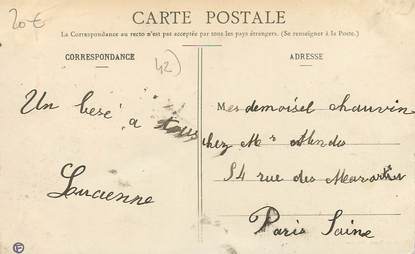 20€
CARTE POSTALE
La Correspondance au recto n'est pas acceptée par tous les pays étrangers. (Se renseigner à la Poste.)
CORRESPONDANCE
ADRESSE
42)
Un besé a tous
Lucienne
Mesdemoisel chauvin
chez Mr
54 rue des
Paris Saine